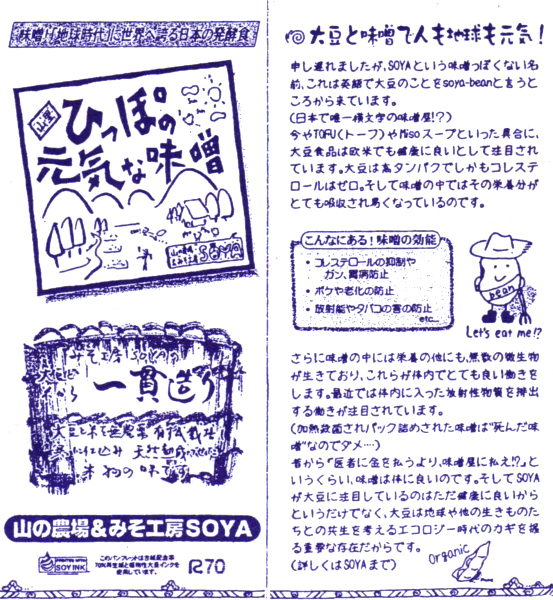 味噌!「地球時代」に世界へ誇る日本の発酵食
山里
ひっぽの
元気な味噌
SOYA
みそ工房 SOYAの
一貫造り
大豆と米を無農薬有機栽培
に仕込み 天然
本物の味です
山の農場&みそ工房SOYA
SOY INK
このパンフレットは古紙配合率
70%再生紙と植物性大豆インクを
使用しています。
R70
大豆と味噌で人も地球も元気!
申し遅れましたが、SOYAという味噌っぽくない名
前、これは英語で大豆のことをsoya-beanと言うと
ころから来ています。
(日本で唯一横文字の味噌屋!?)
今やTOFU(トーフ)やMisoスープといった具合に、
大豆食品は欧米でも健康に良いとして注目され
ています。大豆は高タンパクでしかもコレステ
ロールはゼロ。そして味噌の中ではその栄養分が
とても吸収され易くなっているのです。
こんなにある!味噌の効能
• コレステロールの抑制や
ガン、胃病防止
• ボケや老化の防止
• 放射能やタバコの害の防止
etc...
bean
Let's eat me!?
さらに味噌の中には栄養の他にも、無数の微生物
が生きており、これらが体内でとても良い働きを
します。最近では体内に入った放射性物質を排出
する働きが注目されています。
(加熱殺菌されパック詰めされた味噌は"死んだ味
噌"なのでダメ‥‥)
昔から「医者に金を払うより、味噌屋に払え!?」と
いうくらい、味噌は体に良いのです。そしてSOYA
が大豆に注目しているのはただ健康に良いから
というだけでなく、大豆は地球や他の生きものた
ちとの共生を考えるエコロジー時代のカギを握
る重要な存在だからです。
(詳しくはSOYAまで)
Organic